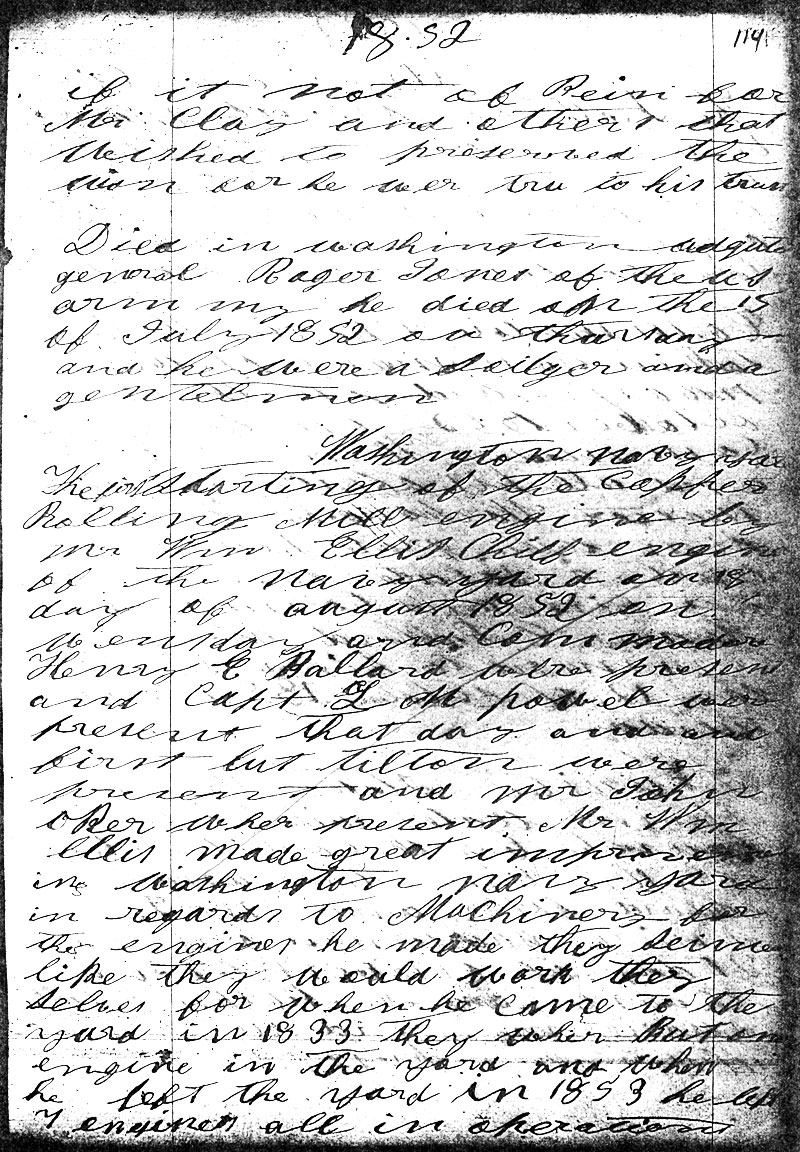 1852
114
if it not of Bein for
Mr Clay and others that
Wished to preserved the
for he wer tru to his
Died in washington adgut
general Roger Jones of the us
arm my he died on the 15
of July 1852 on
and he were a solyer and a
gentelmon
Washington navy
The starting of the Copper
Rolling Mill engine by
mr Wm Ellis Chiff engin
of the navy yard on 18
day of august 1852 on
wensday and Commodore
Henry E Ballard were present
and Capt L M powel wer
present that day and and
first lut tilton were
present and mr John
oker wher present Mr Wm
Ellis made great
in washington navy yard
in regards to Machinery for
the engines he made they seime
like they would work they
selves for when he came to the
yard in 1833 they wher But on
engine in the yard and when
he left the yard in 1853 he left
7 engines all in operations